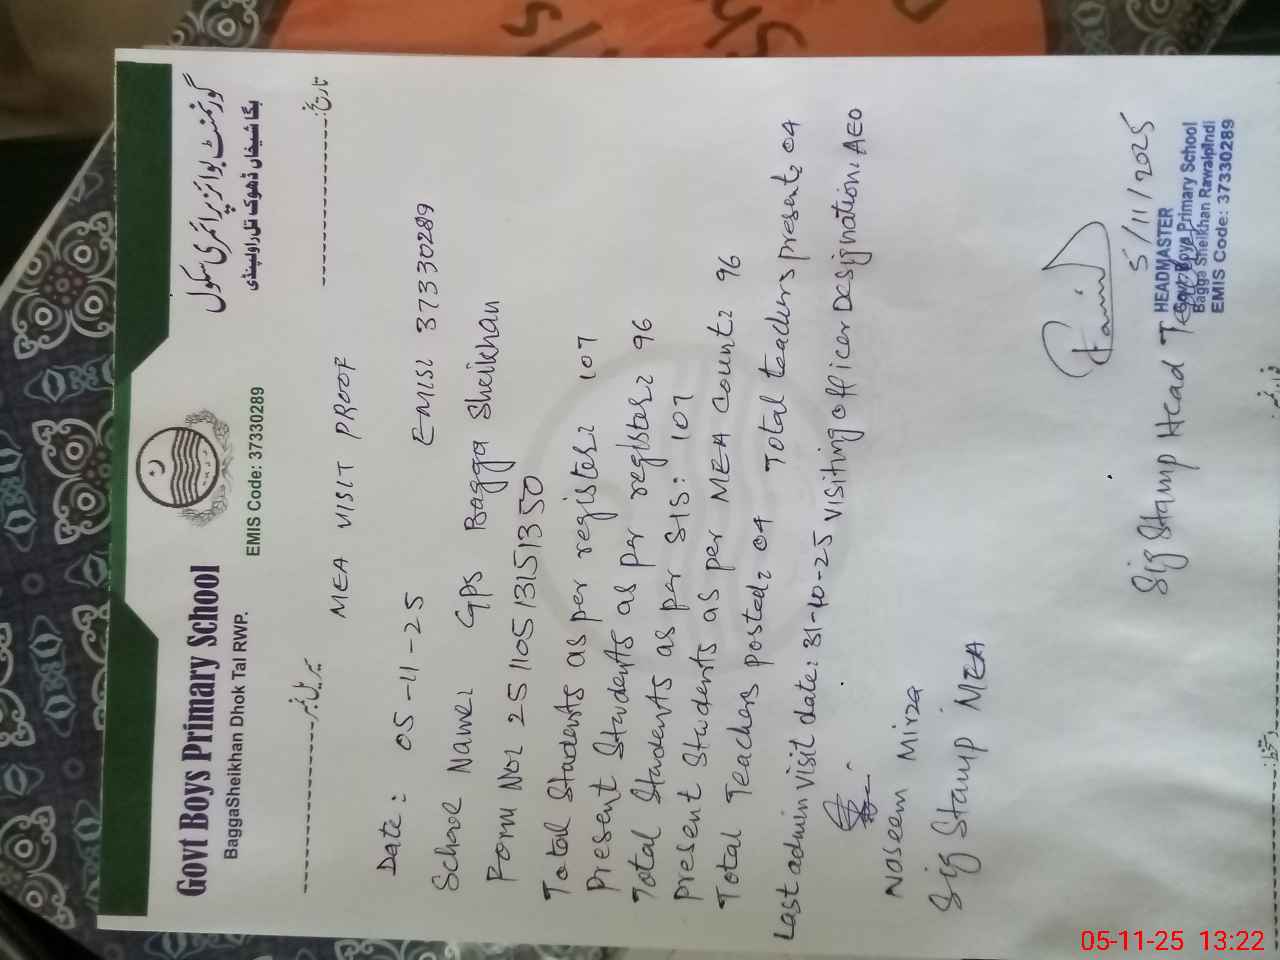 Govt Boys Primary School
BaggaSheikhan Dhok Tal RWP.
EMIS Code: 37330289
گورنمنٹ بوائز پرائمری سکول
بگا شیخاں ڈھوک تل راولپنڈی
تاریخ:
MEA VISIT PROOF
Date: 05-11-25 EMIS: 37330289
School Name: GPS Bagga Sheikhan
Form No: 25110513151350
Total Students as per register: 107
Present Students as per register: 96
Total Students as per SIS: 107
Present Students as per MEA Count: 96
Total Teachers posted: 04 Total teachers present: 04
Last admin visit date: 31-10-25 visiting officer Designation: AEO
Naseem Mirza
Sig Stamp MEA
5/11/2025
Sig Stamp Head
HEADMASTER
Govt. Boys Primary School
Bagga Sheikhan Rawalpindi
EMIS Code: 37330289
05-11-25 13:22